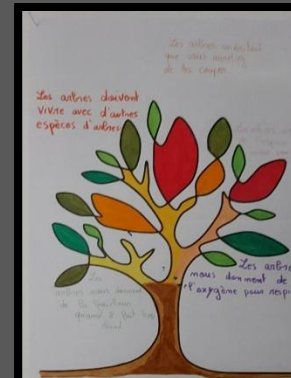 Les arbres méritent
que vous arrêtiez
de les couper
Les arbres doivent
vivre avec d'autres
espèces d'arbres
Les arbres
nous donnent de
l'oxygène pour resp
Les
arbres nous donnent
de la fraîcheur
quand il fait trop
chaud